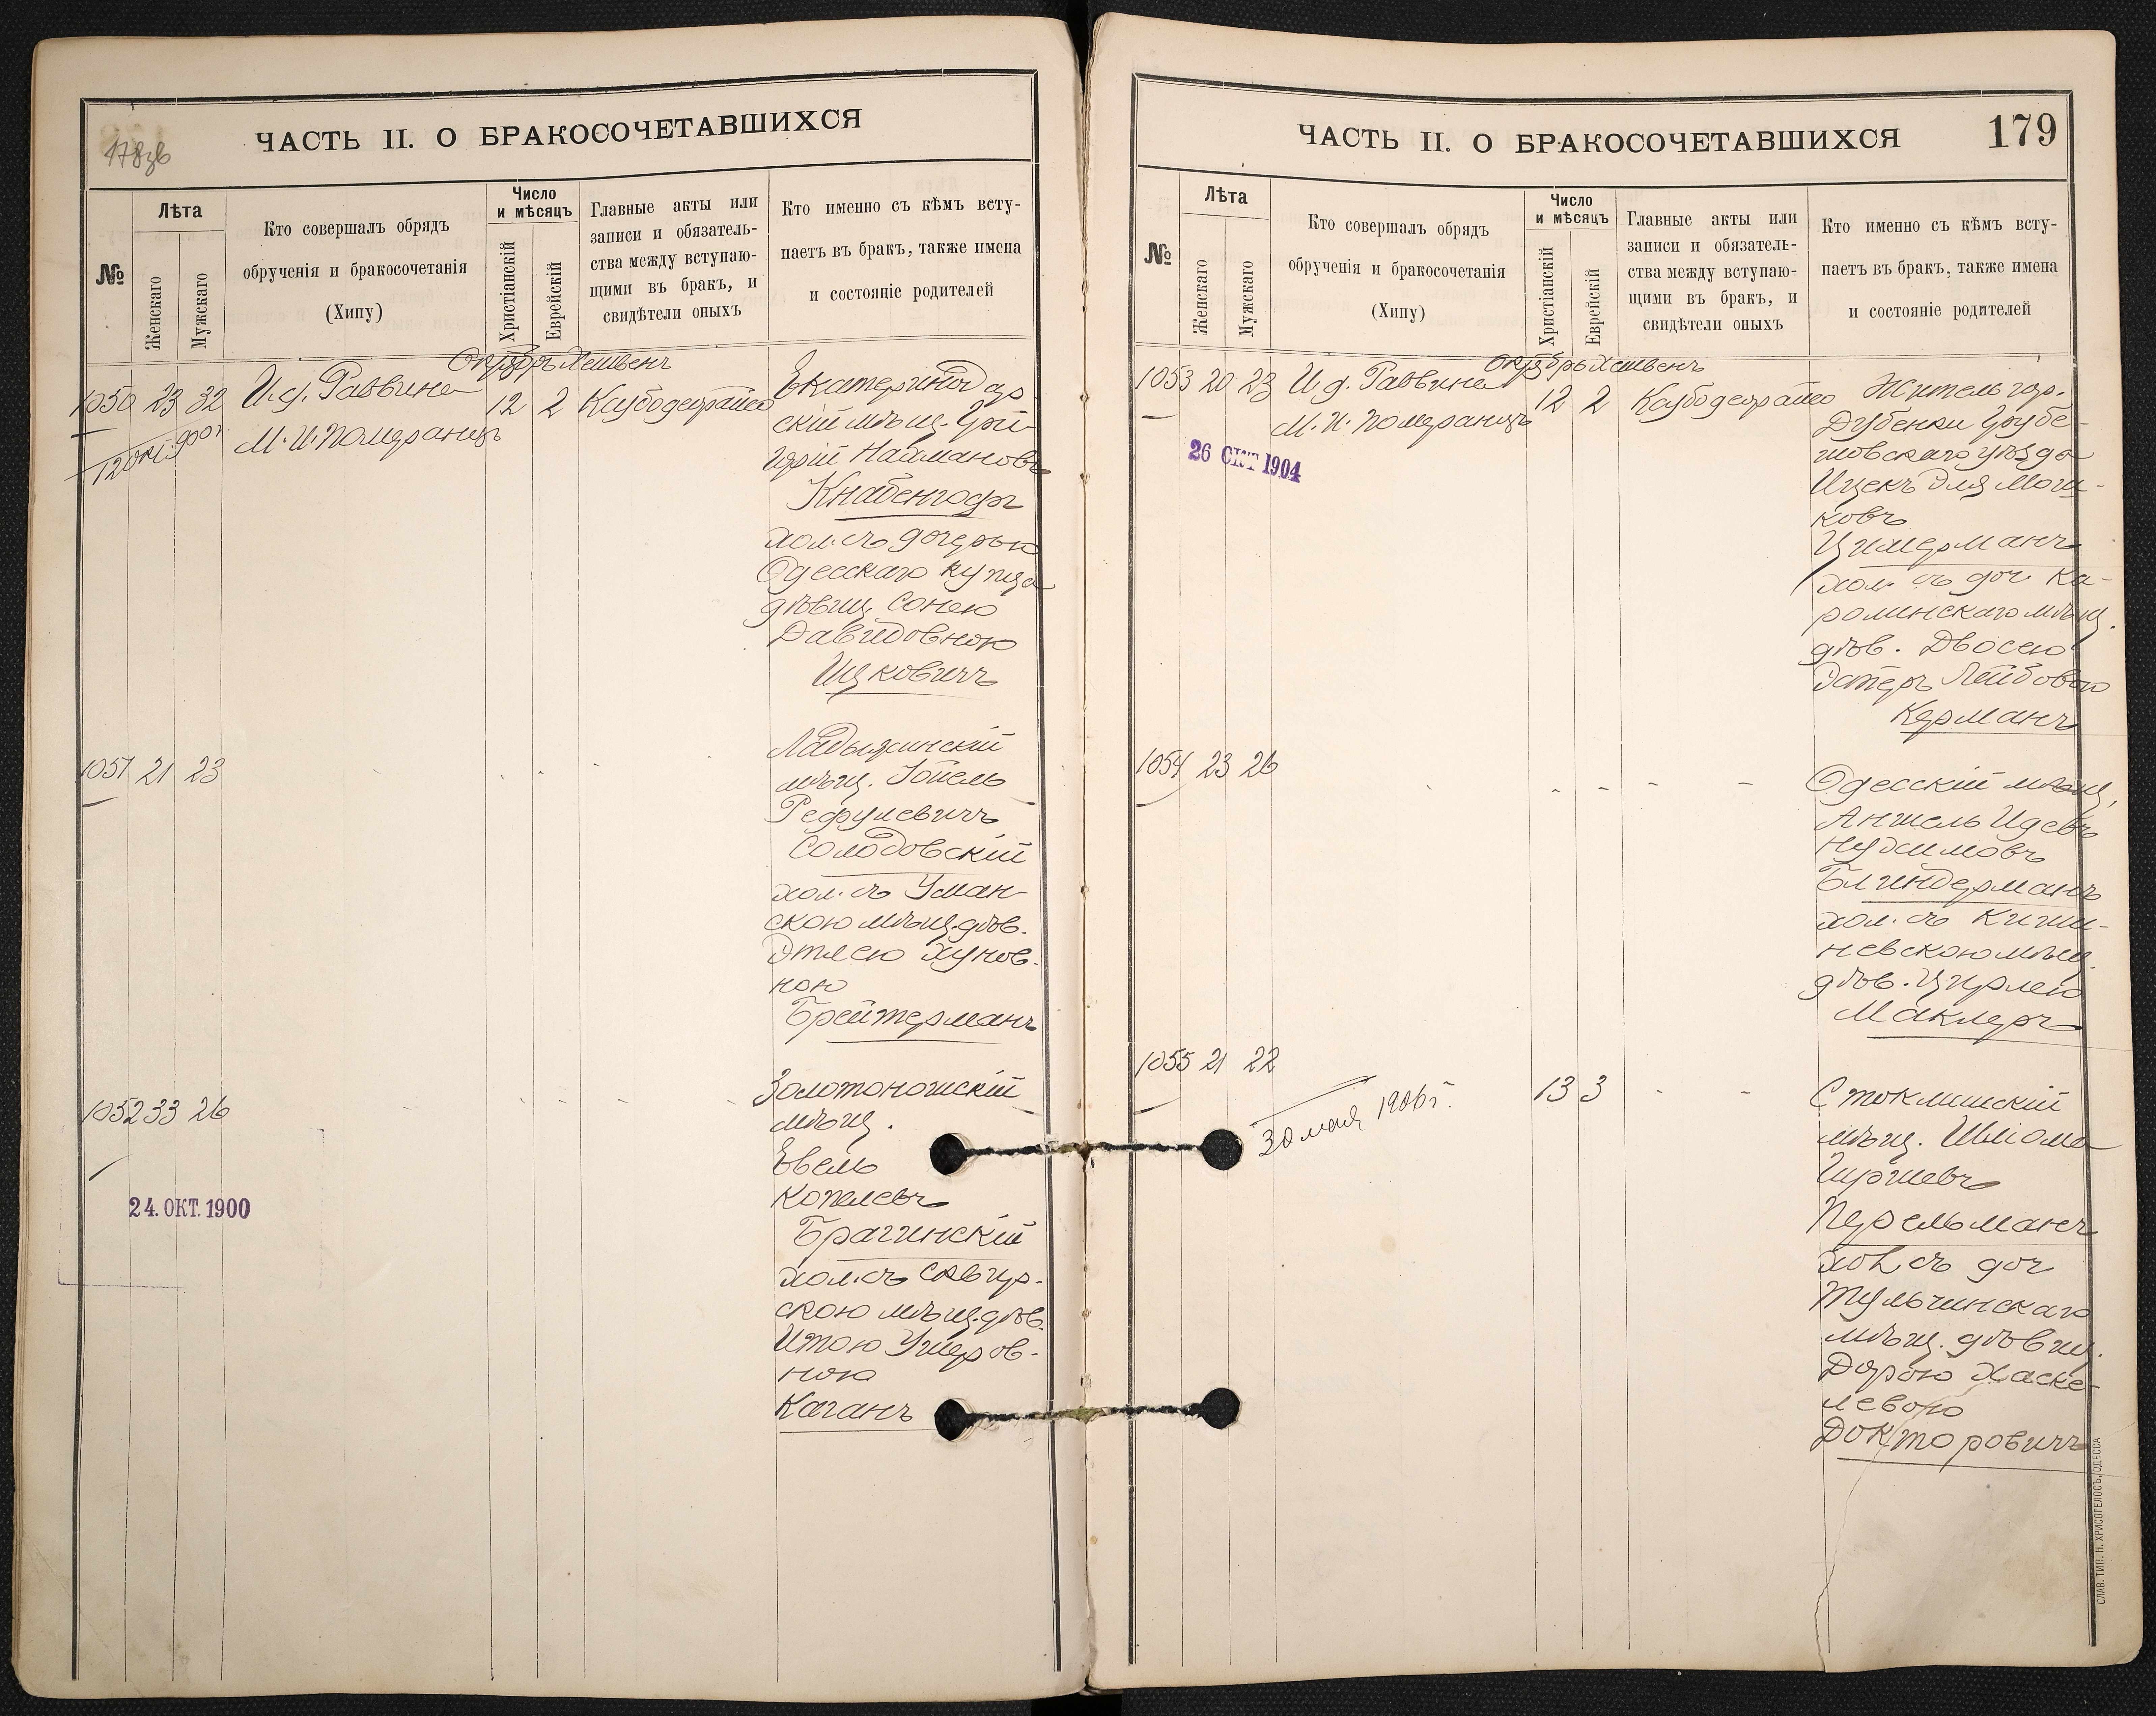 178зв
ЧАСТЬ II. О БРАКОСОЧЕТАВШИХСЯ
№
Лѣта
Женскаго
Мужскаго
Кто совершалъ обрядъ
обрученія и бракосочетанія
(Хипу)
Число
и мѣсяцъ
Христіанскій
Еврейскій
Главные акты или
записи и обязатель-
ства между вступаю-
щими въ бракъ, и
свидѣтели оныхъ
Кто именно съ кѣмъ всту-
паетъ въ бракъ, также имена
и состояніе родителей
Октябрь Хешвенъ
1050 23 32 И.д. Раввина 12 2
М. И. Померанцъ
Екатеринодар-
скій мѣщ. Гри-
горій Наймановъ
Кнабенгофъ
хол. съ дочерью
Одесскаго купца
дѣвиц. Сонею
Давидовною
Ицковичъ
1051 21 23
Ладыжинскій
мѣщ. Іойель
Рефулевичъ
Солодовскій
хол. съ Уман-
скою мѣщ. дѣв.
Этлею Хунов-
ною
Брейтерманъ
1052 33 26
24. ОКТ. 1900
Золотоношскій
мѣщ.
Евель
Копелевъ
Брагинскій
хол. съ Сквир-
скою мѣщ. дѣв.
Итою Ушеров-
ною
Каганъ
179
ЧАСТЬ II. О БРАКОСОЧЕТАВШИХСЯ
№
Лѣта
Женскаго
Мужскаго
Кто совершалъ обрядъ
обрученія и бракосочетанія
(Хипу)
Число
и мѣсяцъ
Христіанскій
Еврейскій
Главные акты или
записи и обязатель-
ства между вступаю-
щими въ бракъ, и
свидѣтели оныхъ
Кто именно съ кѣмъ всту-
паетъ въ бракъ, также имена
и состояніе родителей
Октябрь Хешвенъ
1053 20 23 И.д. Раввина 12 2
М. И. Померанцъ
26 ОКТ 1904
Житель гор.
Дубенки Грубе-
шовскаго уѣзда
Ицекъ Эля Мош-
ковъ
Цимерманъ
хол. съ доч. Ка-
ролинскаго мѣщ.
дѣв. Двосею
Эстеръ Лейбовою
Керманъ
1054 23 26
Одесскій мѣщ.
Аншель Идевъ
Нухимовъ
Блиндерманъ
хол. съ Киши-
невскою мѣщ.
дѣв. Цирлею
Маклеръ
1055 21 22 13 3
30 мая 1906 г.
Стоклишскій
мѣщ. Шліома
Гиршевъ
Перельманъ
хол. съ доч
Тульчинскаго
мѣщ. дѣвиц.
Дорою Хаске-
левою
Докторовичъ
СЛАВ. ТИП. Н. ХРИСОГЕЛОСЪ, ОДЕССА